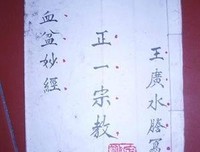 王廣水謄寫
正一宗教
血盆妙經